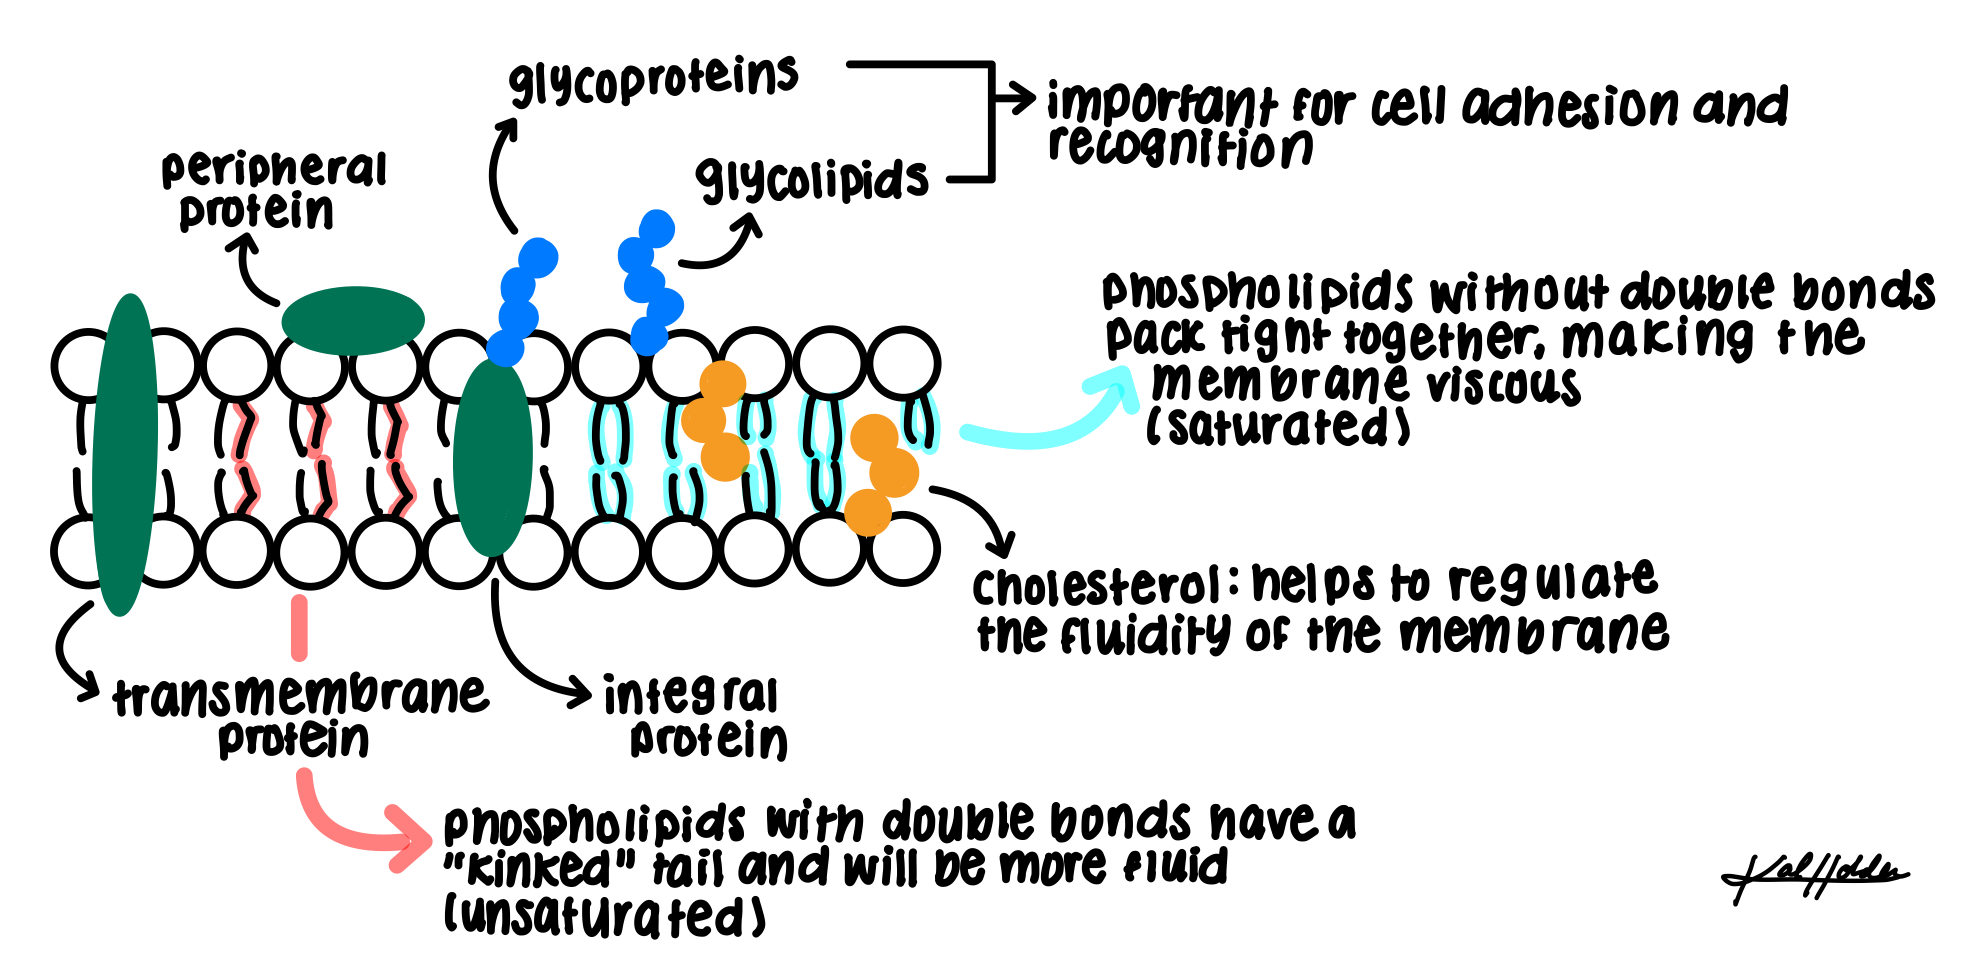 glycoproteins
important for cell adhesion and
recognition
glycolipids
peripheral
protein
phospholipids without double bonds
pack tight together, making the
membrane viscous
(saturated)
cholesterol: helps to regulate
the fluidity of the membrane
transmembrane
protein
integral
protein
phospholipids with double bonds have a
"kinked" tail and will be more fluid
(unsaturated)